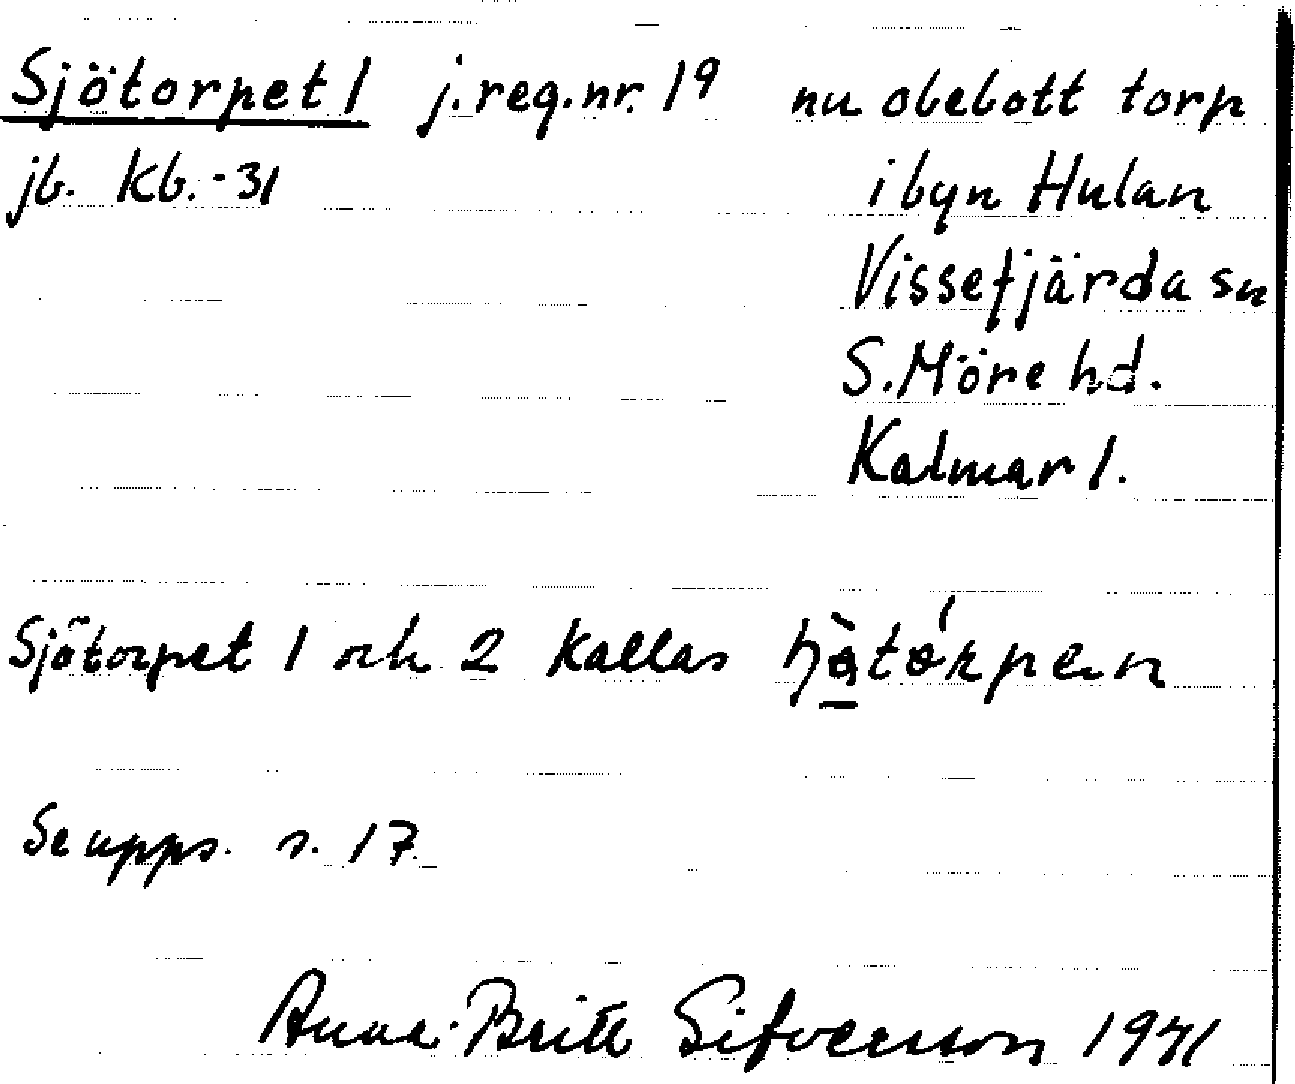 Sjötorpet 1 j.reg.nr. 19 nu obebott torp
jb. Kb. -31 i byn Hulan
Vissefjärda sn
S. Möre hd.
Kalmar l.
Sjötorpet 1 och 2 kallas
Se upps. s. 17
Anna-Britt Sifversson 1971